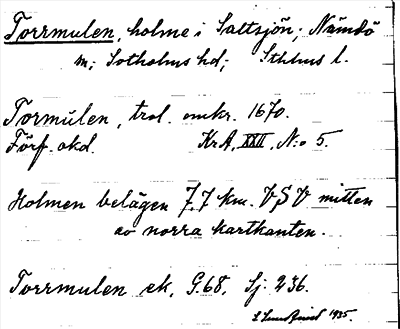 Torrmulen, holme i Saltsjön; Nämdö
m; Sotholms hd; Sthlms l.
Tormulen, trol. omkr. 1670.
Förf. okd. KrA, XXII, N:o 5.
Holmen belägen 7,7 km. VSV mitten
av norra kartkanten.
Torrmulen ek. G.68. Sj. 236.
1935.